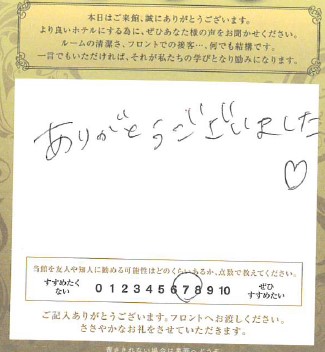 本日はご来館、誠にありがとうございます。
より良いホテルにする為に、ぜひあなた様の声をお聞かせください。
ルームの清潔さ、フロントでの接客…、何でも結構です。
一言でもいただければ、それが私たちの学びとなり励みになります。
ありがとうございました
♡
当館を友人や知人に勧める可能性はどのくらいあるか、点数で教えてください。
すすめたくない 0 1 2 3 4 5 6 7 8 9 10 ぜひすすめたい
ご記入ありがとうございます。フロントへお渡しください。
ささやかなお礼をさせていただきます。